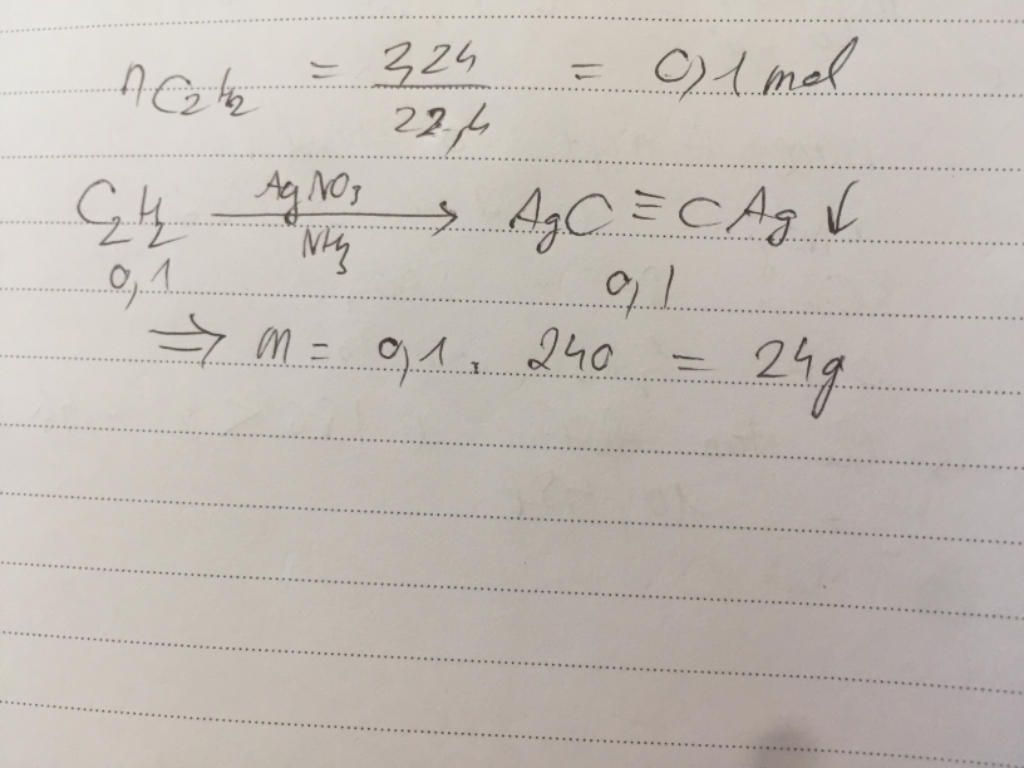 nC2H2 = 2,24/22,4 = 0,1 mol
C2H2 —AgNO3/NH3→ AgC≡CAg↓
0,1 0,1
⇒ m = 0,1 . 240 = 24g